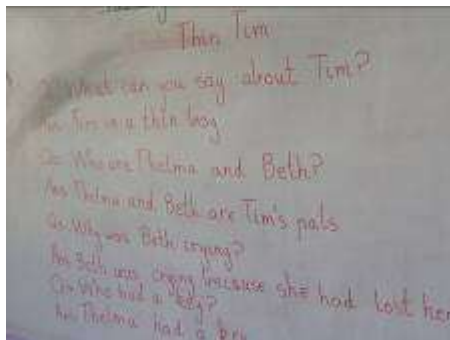 Thin Tim
Q. What can you say about Tim?
Ans Tim is a thin boy
Qs Who are Thelma and Beth?
Ans Thelma and Beth are Tim's pals
Qs Why was Beth crying?
Ans Beth was crying because she had lost her
Qs Who had a key?
Ans Thelma had a key